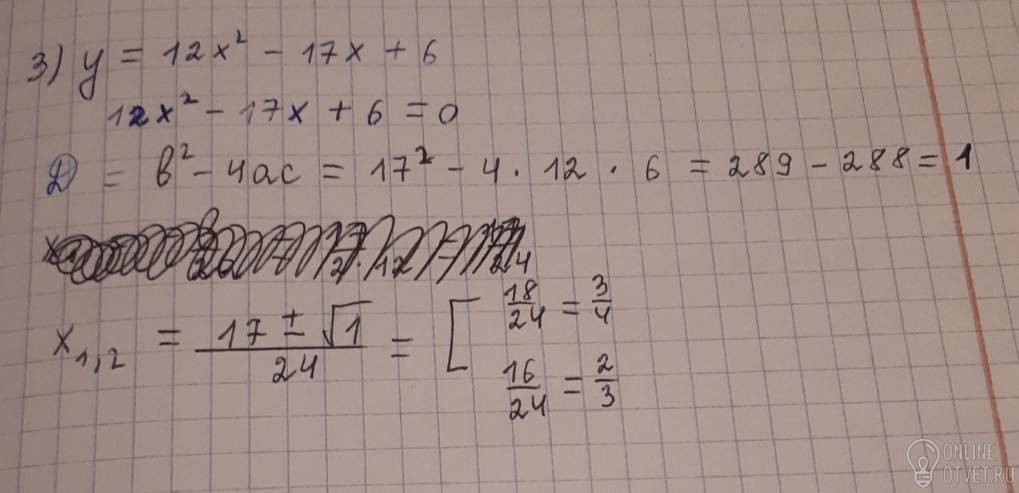 3) y = 12x² - 17x + 6
12x² - 17x + 6 = 0
D = b² - 4ac = 17² - 4 · 12 · 6 = 289 - 288 = 1
x₁,₂ = (17 ± √1)/24 = [ 18/24 = 3/4
16/24 = 2/3
ONLINE
OTVET.RU